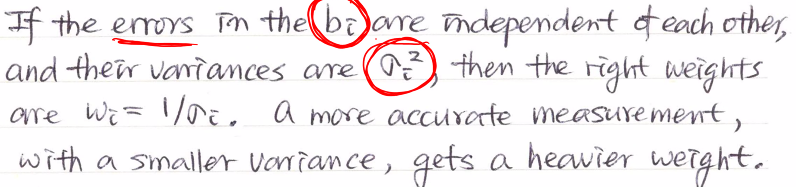 If the errors in the bᵢ are independent of each other,
and their variances are σᵢ², then the right weights
are wᵢ = 1/σᵢ. a more accurate measurement,
with a smaller variance, gets a heavier weight.